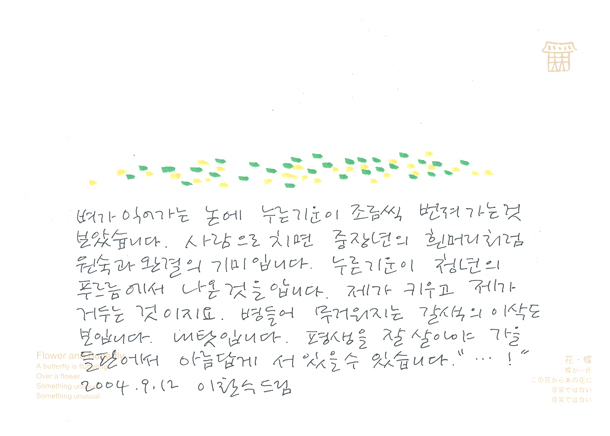 벼가 익어가는 논에 누른기운이 조금씩 번져가는것
보았습니다. 사람으로 치면 중장년의 흰머리처럼
원숙과 완결의 기미입니다. 누른기운이 청년의
푸르름에서 나온것을 압니다. 제가 키우고 제가
거두는 것이지요. 병들어 무거워지는 갈색의 이삭도
보입니다. 내탓입니다. 평생을 잘 살아야 가을
들판에서 아름답게 서 있을수 있습니다." … ! "
2004.9.12 이철수드림
Flower an
A butterfly is f
Over a flower
Something u
Something unusual
花・蝶
蝶が一片
この花からあの花に
尋常ではない
尋常ではない